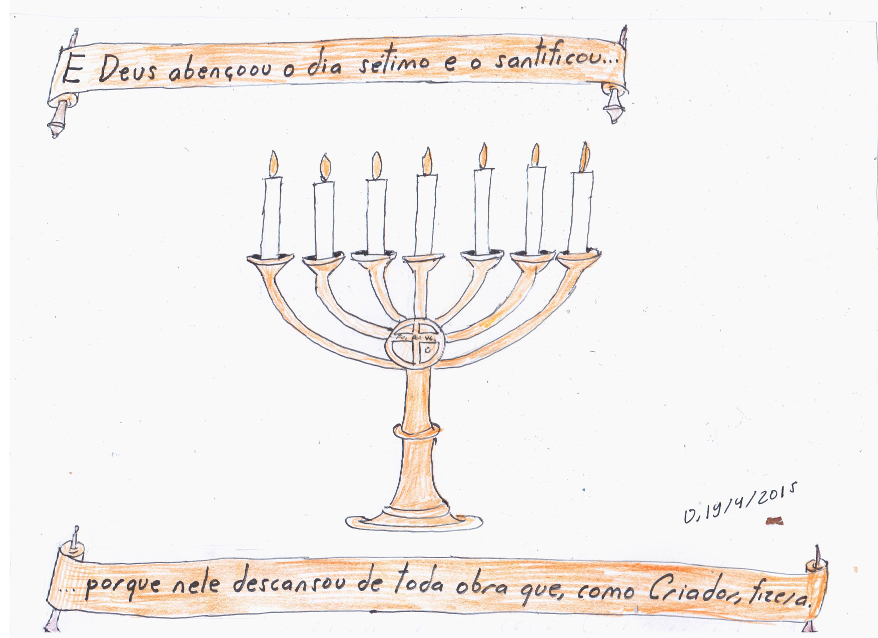 E Deus abençoou o dia sétimo e o santificou...
0,19/4/2015
... porque nele descansou de toda obra que, como Criador, fizera.